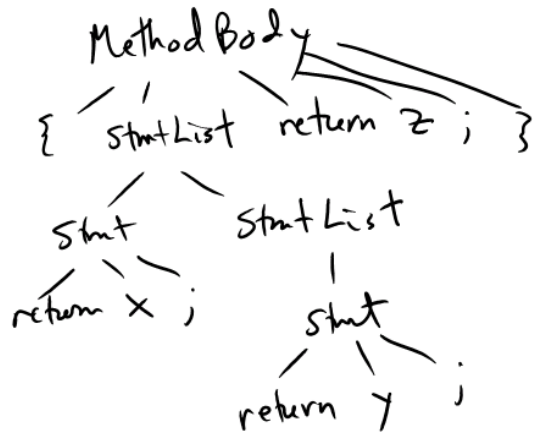 MethodBody
{ StmtList return z ; }
Stmt StmtList
return x ;
Stmt
return y ;